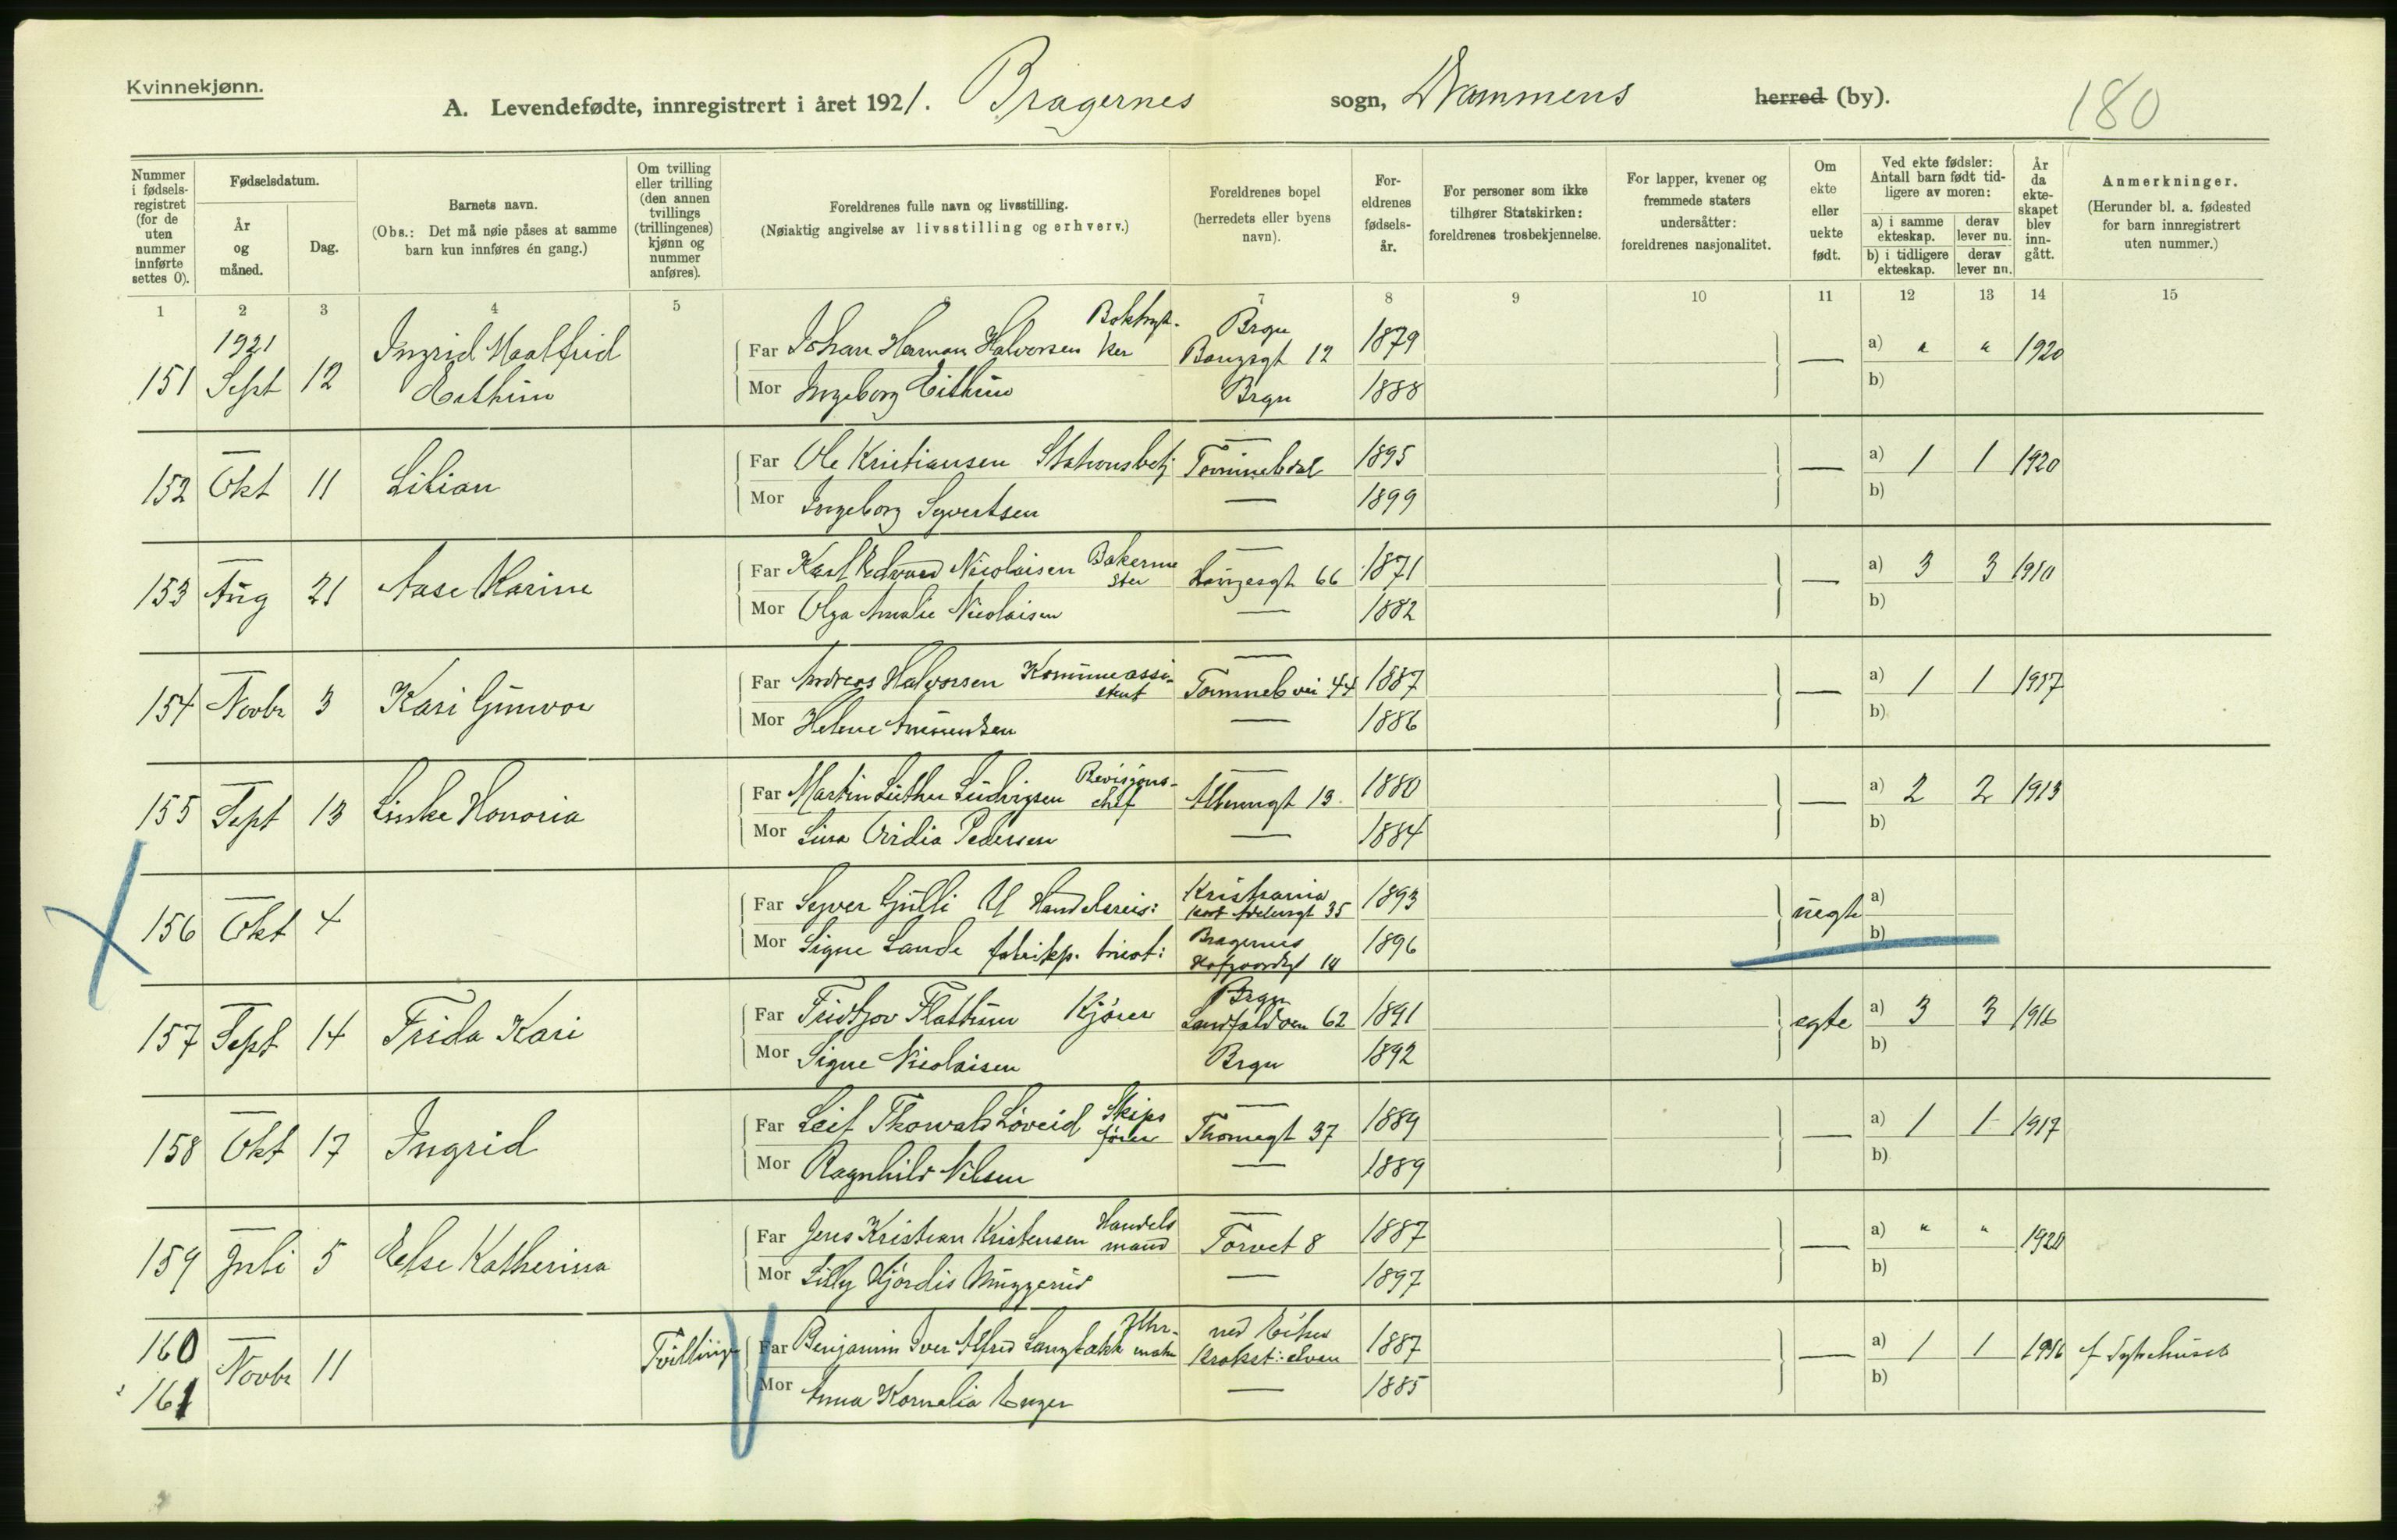 Kvinnekjønn.
A. Levendefødte, innregistrert i året 1921. Bragernes sogn, Drammens herred (by). 180
Nummer i fødselsregistret (for de uten nummer innførte settes 0).
Fødselsdatum.
År og måned.
Dag.
Barnets navn.
(Obs.: Det må nøie påses at samme barn kun innføres én gang.)
Om tvilling eller trilling (den annen tvillings (trillingenes) kjønn og nummer anføres).
Foreldrenes fulle navn og livsstilling.
(Nøiaktig angivelse av livsstilling og erhverv.)
Foreldrenes bopel (herredets eller byens navn).
Foreldrenes fødselsår.
For personer som ikke tilhører Statskirken: foreldrenes trosbekjennelse.
For lapper, kvener og fremmede staters undersåtter: foreldrenes nasjonalitet.
Om ekte eller uekte født.
Ved ekte fødsler: Antall barn født tidligere av moren:
a) i samme ekteskap. derav lever nu.
b) i tidligere ekteskap. derav lever nu.
År da ekteskapet blev inngått.
Anmerkninger.
(Herunder bl. a. fødested for barn innregistrert uten nummer.)
1 2 3 4 5 6 7 8 9 10 11 12 13 14 15
151 1921 Sept 12 Ingrid Maalfrid Eithun
Far Johan Herman Halvorsen Boktrykker Brgn Baugsgt 12 1879 — a) " " 1920
Mor Ingeborg Eithun Brgn 1888 b)
152 — Okt 11 Lilian
Far Ole Kristiansen Stationsbetj — 1895 — a) 1 1 1920
Mor Ingeborg Syvertsen — 1899 b)
153 — Aug 21 Aase Karine
Far Karl Edvard Nicolaisen Bakermester — Haugesgt 66 1871 — a) 3 3 1910
Mor Olga Amalie Nicolaisen — 1882 b)
154 — Novbr 3 Kari Gunvor
Far Andreas Halvorsen Kommuneassistent — 44 1887 — a) 1 1 1917
Mor Helene Amundsen — 1886 b)
155 — Sept 13 Linke Honoria
Far Martin Luther Ludvigsen Revisjonschef — Albumsgt 13 1880 — a) 2 2 1913
Mor Lina Pedersen — 1884 b)
156 — Okt 4
Far Syver Gulli Handelsreis: Kristiania Kort Adelersgt 35 1893 uegte a)
Mor Signe Lande fabrikp. tricot: Bragernes Hofgaardsgt 14 1896 b)
157 — Sept 14 Frida Kari
Far Fridtjov Flattum Kjører Brgn Landfaldøen 62 1891 egte a) 3 3 1916
Mor Signe Nicolaisen Brgn 1892 b)
158 — Okt 17 Ingrid
Far Leif Thorvald Løveid Skipsfører — Thornegt 37 1889 — a) 1 1 1917
Mor Ragnhild Nilsen — 1889 b)
159 — Juli 5 Else Katherina
Far Jens Kristian Kristensen Handelsmand — Torvet 8 1887 — a) " " 1920
Mor Lilly Hjørdis Muggerud — 1897 b)
160 161 — Novbr 11 Tvillinger
Far Benjamin Iver Alfred ned Eiker Krokst:elven 1887 — a) 1 1 1916 f Sykehuset
Mor Anna Kornelia Enger — 1885 b)